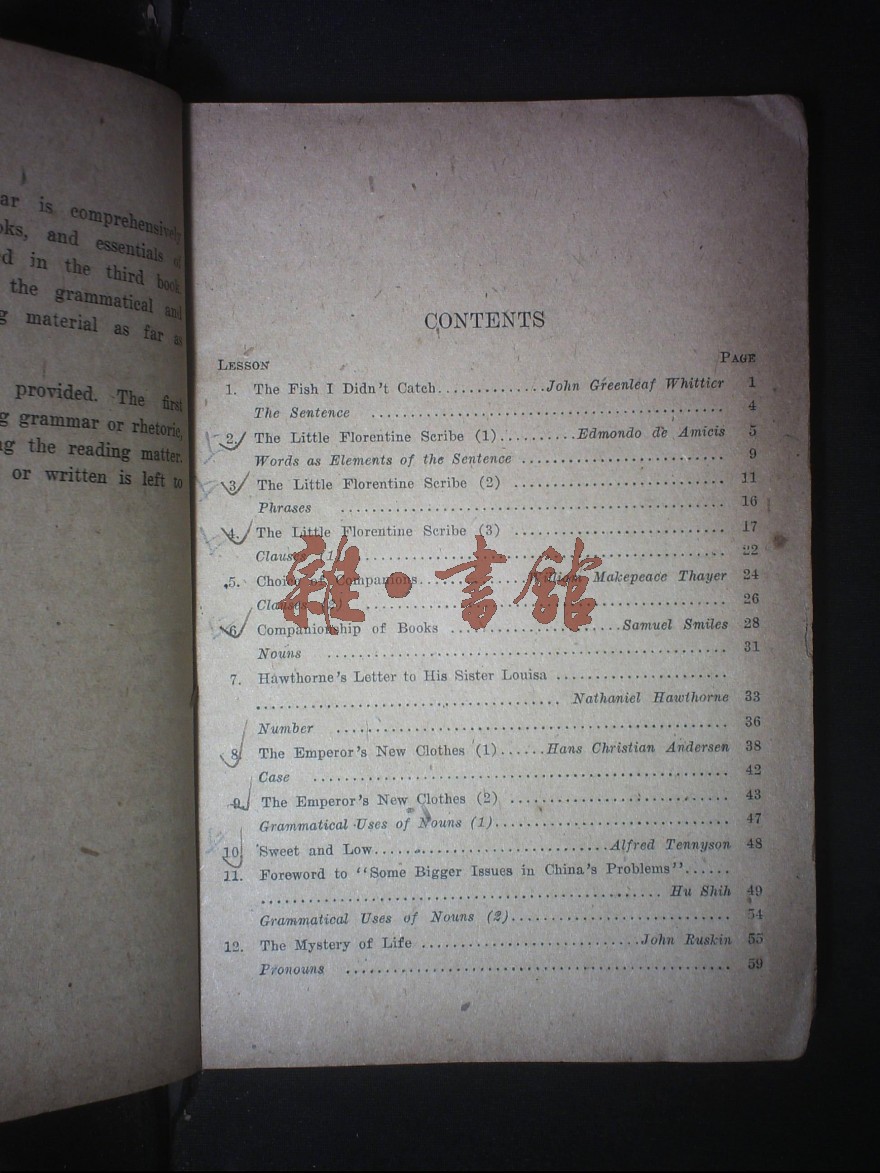 ar is comprehensively
oks, and essentials of
d in the third book
the grammatical and
g material as far as
provided. The first
g grammar or rhetoric,
ng the reading matter.
or written is left to
CONTENTS
LESSON PAGE
1. The Fish I Didn't Catch..............John Greenleaf Whittier 1
The Sentence ............................................. 4
2. The Little Florentine Scribe (1)..........Edmondo de Amicis 5
Words as Elements of the Sentence .......................... 9
3. The Little Florentine Scribe (2) ........................... 11
Phrases ................................................. 16
4. The Little Florentine Scribe (3) ........................... 17
Clauses (1) ............................................. 22
5. Choice of Companions..............William Makepeace Thayer 24
Clauses (2) ............................................. 26
6. Companionship of Books ......................Samuel Smiles 28
Nouns ................................................... 31
7. Hawthorne's Letter to His Sister Louisa ......................
....................................... Nathaniel Hawthorne 33
Number .................................................. 36
8. The Emperor's New Clothes (1)......Hans Christian Andersen 38
Case ..................................................... 42
9. The Emperor's New Clothes (2) ............................ 43
Grammatical Uses of Nouns (1).............................. 47
10. Sweet and Low..............................Alfred Tennyson 48
11. Foreword to "Some Bigger Issues in China's Problems"......
................................................... Hu Shih 49
Grammatical Uses of Nouns (2)............................ 54
12. The Mystery of Life ............................John Ruskin 55
Pronouns ................................................. 59
雜·書館